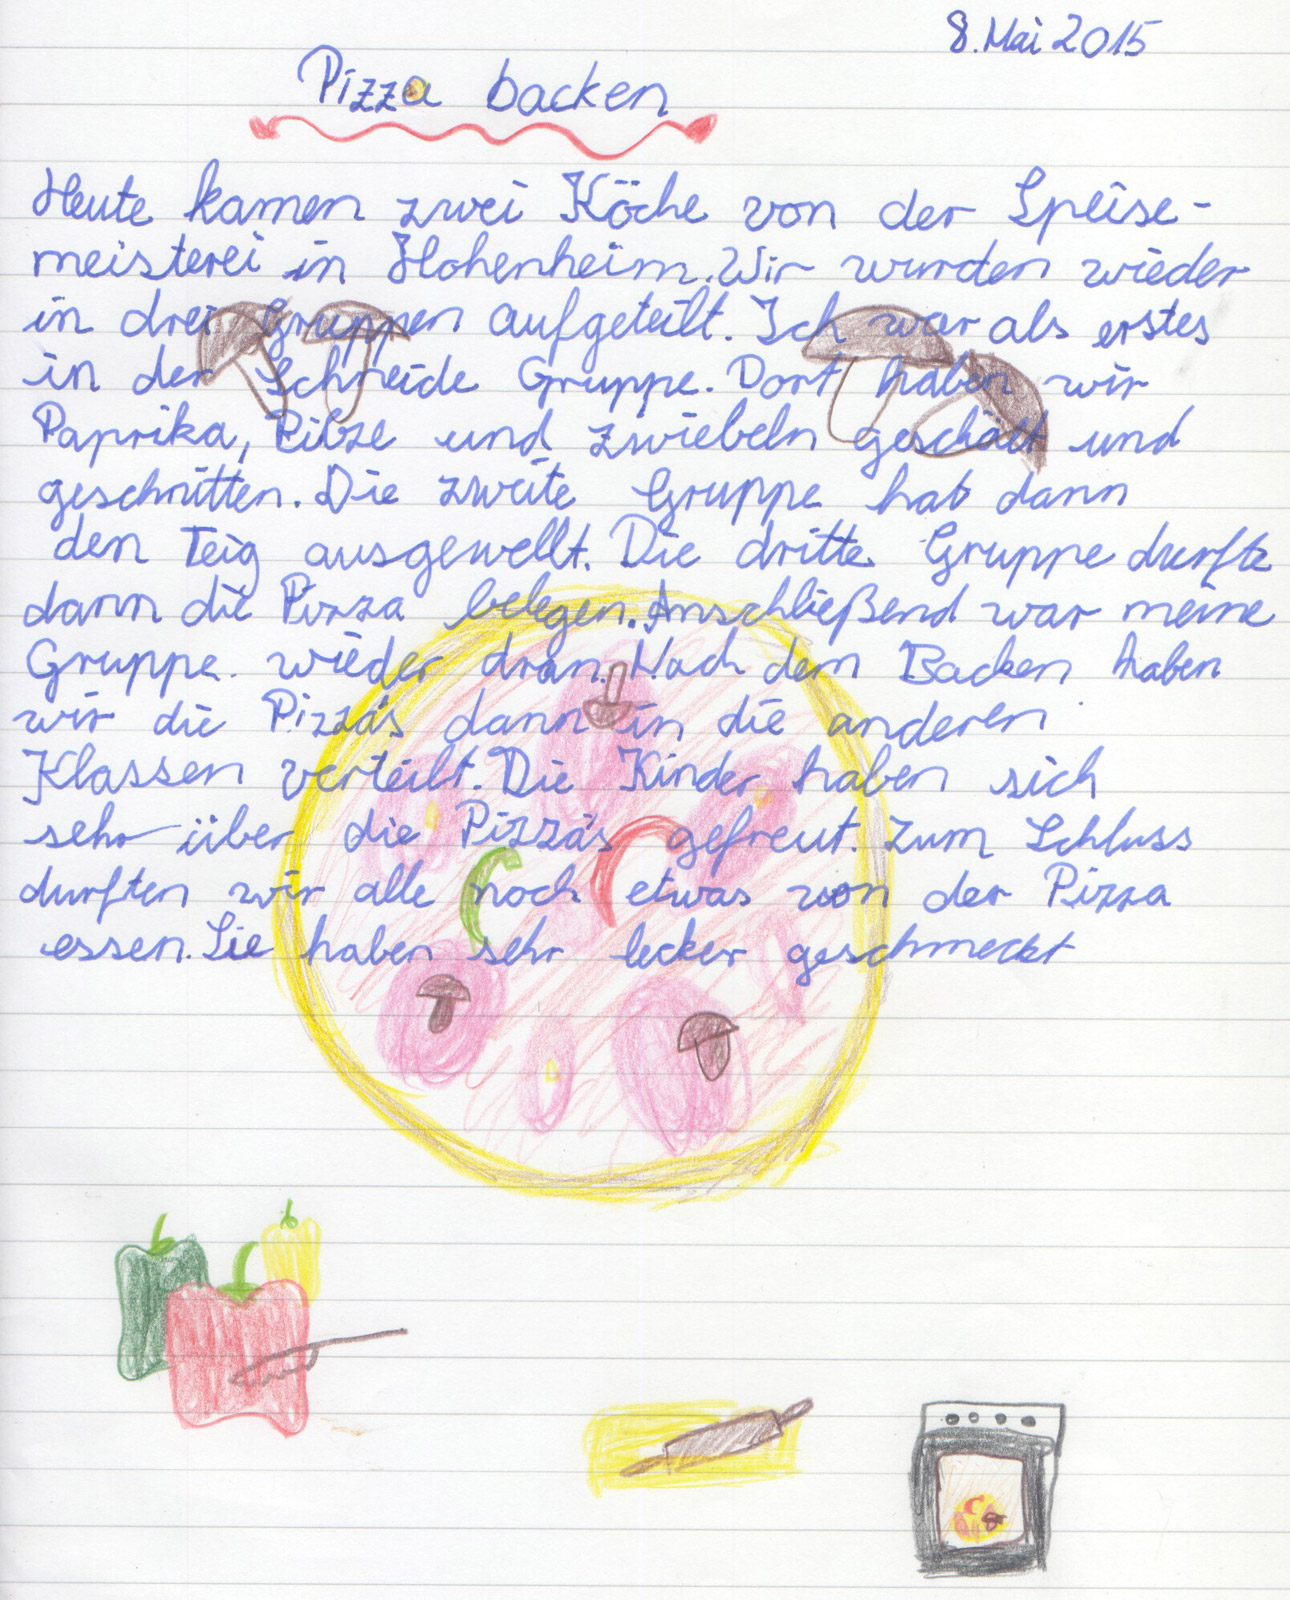 8. Mai 2015
Pizza backen
Heute kamen zwei Köche von der Speise-
meisterei in Hohenheim. Wir wurden wieder
in drei Gruppen aufgeteilt. Ich war als erstes
in der Schneide Gruppe. Dort haben wir
Paprika, Pilze und zwiebeln geschält und
geschnitten. Die zweite Gruppe hab dann
den Teig ausgewellt. Die dritte Gruppe durfte
dann die Pizza belegen. Anschließend war meine
Gruppe wieder dran. Nach dem Backen haben
wir die Pizza's dann in die anderen
Klassen verteilt. Die Kinder haben sich
sehr über die Pizza's gefreut. Zum Schluss
durften wir alle noch etwas von der Pizza
essen. Sie haben sehr lecker geschmeckt